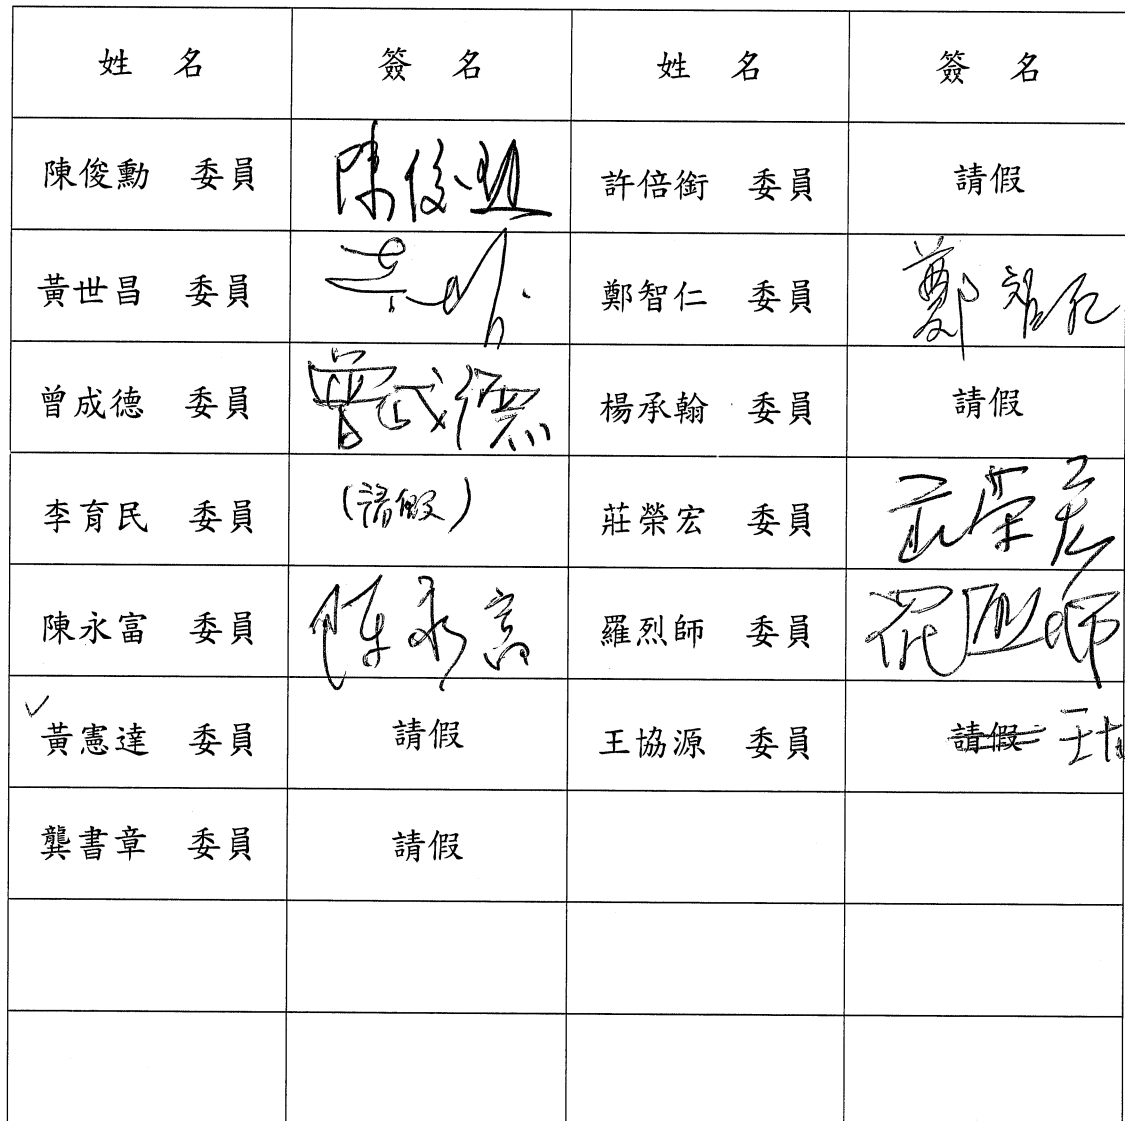 姓 名 簽 名 姓 名 簽 名
陳俊勳 委員 陳俊勳 許倍銜 委員 請假
黃世昌 委員 鄭智仁 委員 鄭智仁
曾成德 委員 曾成德 楊承翰 委員 請假
李育民 委員 (請假) 莊榮宏 委員 莊榮宏
陳永富 委員 陳永富 羅烈師 委員 羅烈師
黃憲達 委員 請假 王協源 委員 請假 王
龔書章 委員 請假